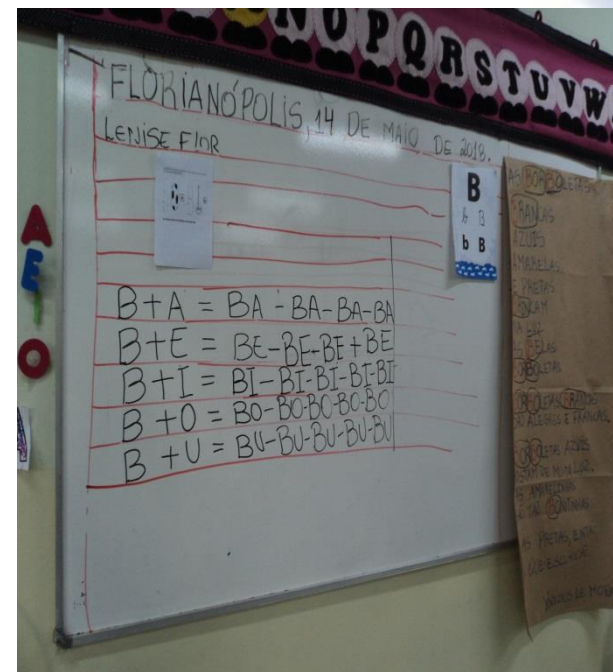 N O P Q R S T U V W
FLORIANÓPOLIS, 14 DE MAIO DE 2018.
LENISE FLOR
B
b B
b B
A
E
I
O
B+A = BA-BA-BA-BA
B+E = BE-BE-BE+BE
B+I = BI-BI-BI-BI-BI
B+O = BO-BO-BO-BO-BO
B+U = BU-BU-BU-BU-BU
AS BORBOLETAS
BRANCAS
AZUIS
AMARELAS
E PRETAS
BRINCAM
NA LUZ
AS BELAS
BORBOLETAS
BORBOLETAS BRANCAS
SÃO ALEGRES E FRANCAS.
BORBOLETAS AZUIS
GOSTAM DE MUITA LUZ.
AS AMARELINHAS
SÃO TÃO BONITINHAS
AS PRETAS, ENTÃO